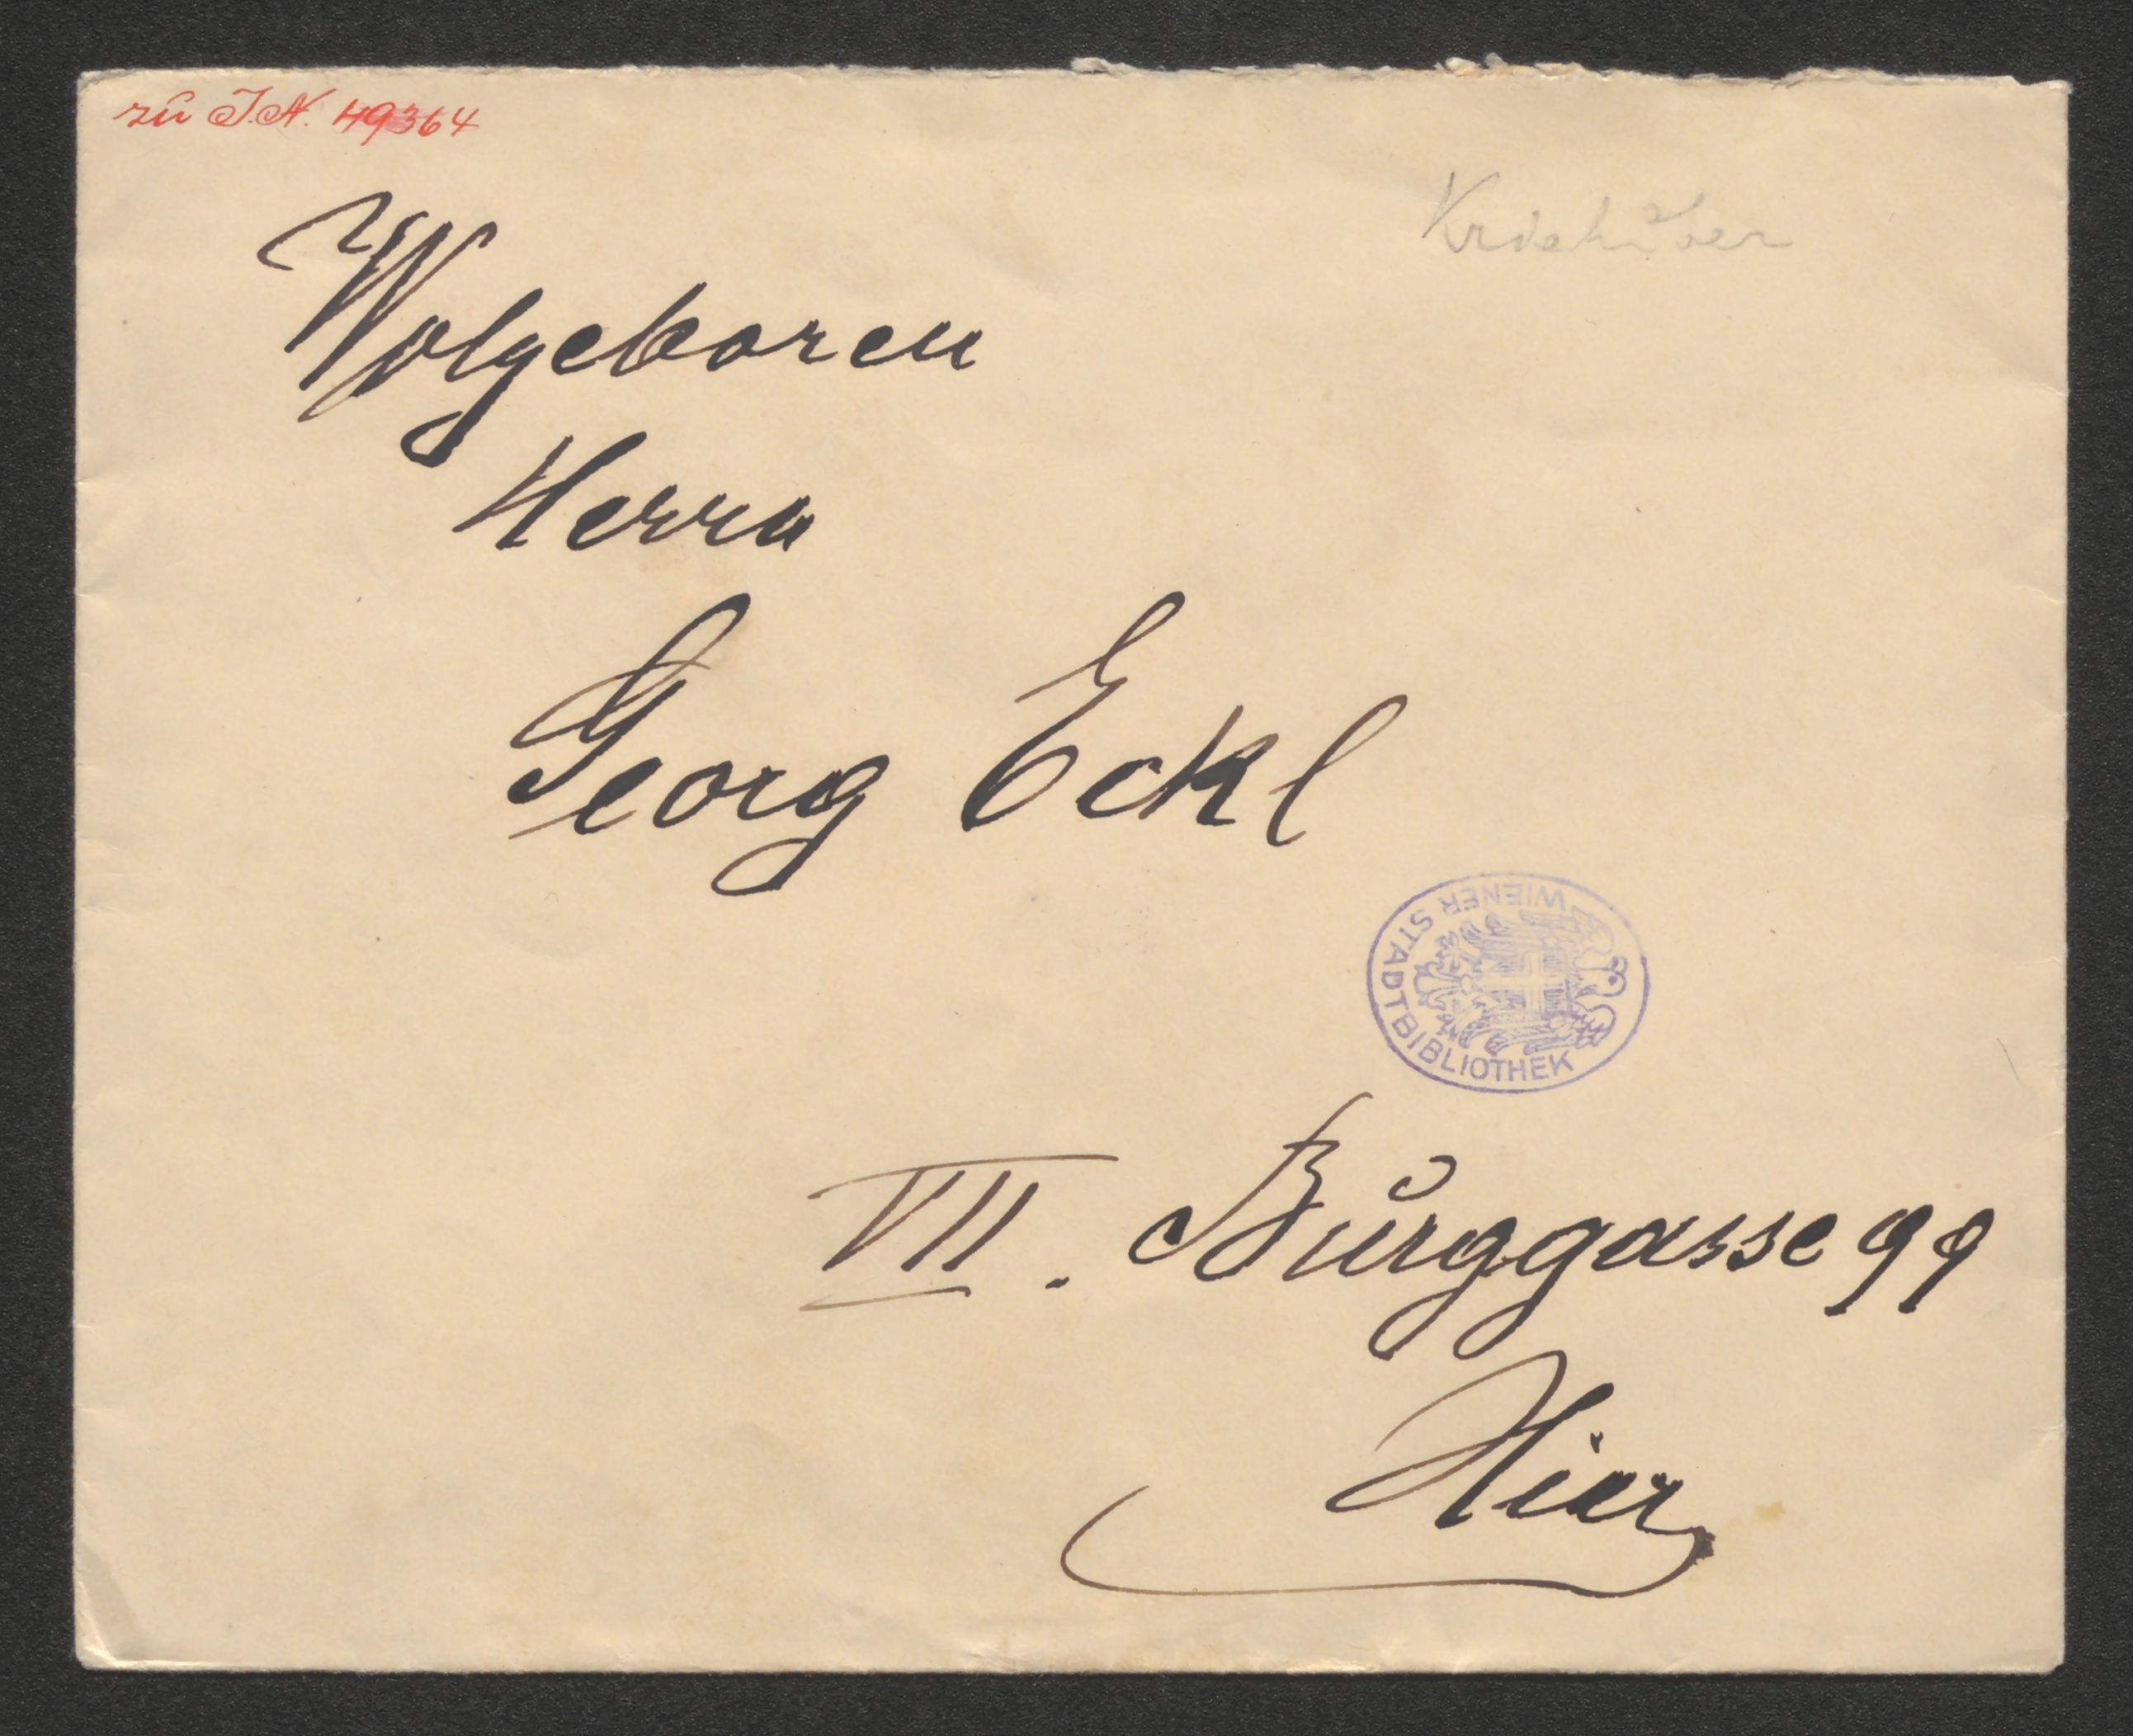 zu I.N. 49364
Kriehuber
Wolgeboren
Herrn
Georg Eckl
WIENER STADTBIBLIOTHEK
VII. Burggasse 99
Hier